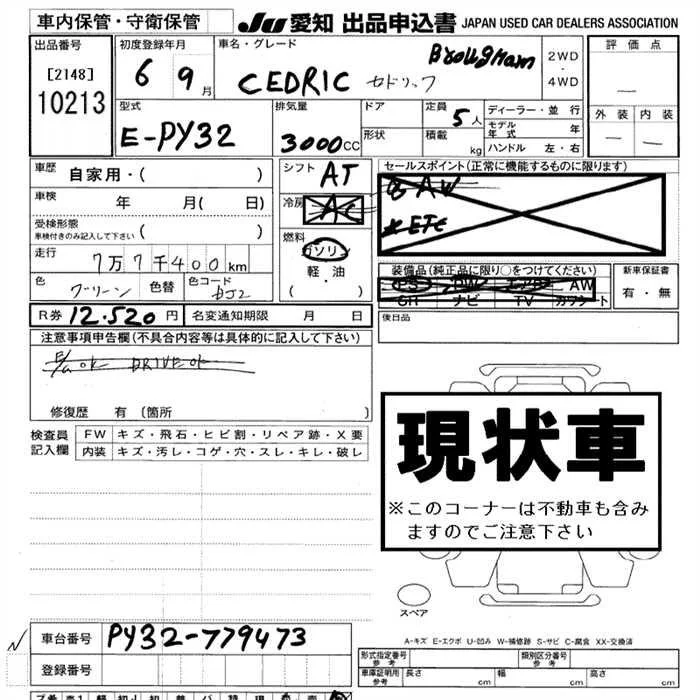 車内保管・守衛保管 JU 愛知 出品申込書 JAPAN USED CAR DEALERS ASSOCIATION
出品番号 [2148] 10213
初度登録年月 6 9月
車名・グレード CEDRIC セドリック Brougham
2WD・4WD
評価点 —
外装 — 内装 —
型式 E-PY32
排気量 3000CC
ドア
形状
定員 5人
積載 kg
ディーラー・並行
モデル年式 年
ハンドル 左・右
車歴 自家用・( )
車検 年 月( 日)
受検形態
車検付きのみ記入して下さい ( )
走行 7万7千400km
色 グリーン 色替 色コード DJ2
シフト AT
冷房 AC
燃料 ガソリン
軽・油
・( )
セールスポイント(正常に機能するものに限ります)
AW
ETC
装備品(純正品に限り○をつけてください)
PS PW エアB AW
SR ナビ TV カワシート
新車保証書
有・無
R券 12.520円 名変通知期限 月 日
後日品
注意事項申告欄(不具合内容等は具体的に記入して下さい)
E/G OK DRIVE OK
修復歴 有 〔箇所 〕
検査員記入欄
FW キズ・飛石・ヒビ割・リペア跡・X要
内装 キズ・汚レ・コゲ・穴・スレ・キレ・破レ
現状車
※このコーナーは不動車も含み
ますのでご注意下さい
スペア
A-キズ E-エクボ U-凹み W-補修跡 S-サビ C-腐食 XX-交換済
車台番号 PY32-779473
登録番号
形式指定番号 参考 類別区分番号 参考
車庫証明用 参考 長さ cm 幅 cm 高さ cm